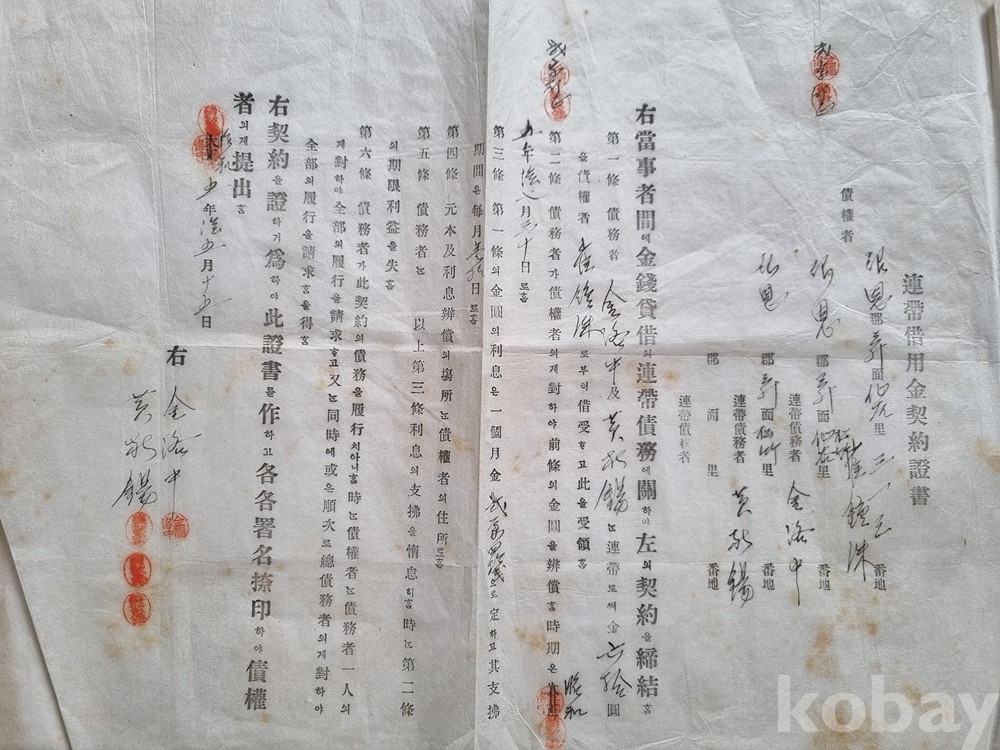 連帶借用金契約證書
張恩郡 面 里 番地
債權者 崔鍾洙
郡 面 里 番地
連帶債務者 金洛中
郡 面 里 番地
連帶債務者 黃 錫
郡 面 里 番地
連帶債權者
右當事者間에金錢貸借의連帶債務에關하야左의契約을締結홈
第一條 債務者 金洛中及黃 錫는連帶로써金 拾圓
을債權者 崔鍾洙로부터借受하고此을受領홈
第二條 債務者가債權者의게對하야前條의金圓을辨償홀時期은昭和
五年 月三十日로홈
第三條 第一條의金圓의利息은一個月金 으로定하고其支拂
期間은每月 日로홈
第四條 元本及利息辨償의場所는債權者의住所로홈
第五條 債務者는 以上第三條利息의支拂을惰怠히홀時는第二條
의期限利益을失홈
第六條 債務者가此契約의債務을履行치아니홀時는債權者는債務者一人의
게對하야全部의履行을請求하고又는同時에或은順次로總債務者의게對하야
全部의履行을請求홈을得홈
右契約을證하기爲하야此證書를作하고各各署名捺印하야債權
者의게提出홈
昭和五年 五月十五日
右 金洛中
黃 錫
kobay